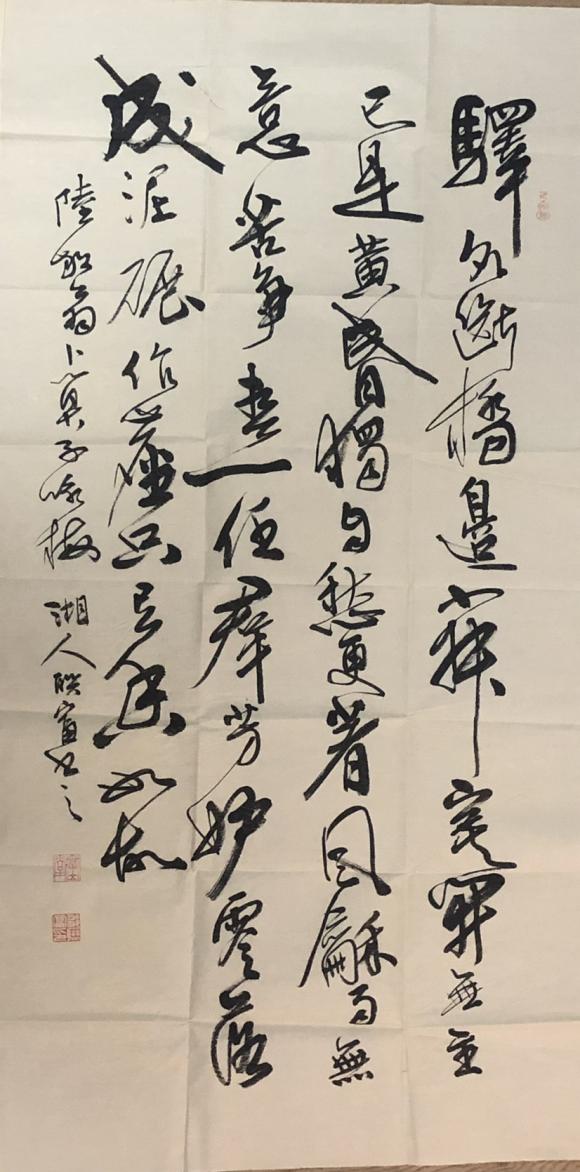 驛外斷橋邊寂寞開無主
已是黃昏獨自愁更著風龢雨無
意苦爭春一任羣芳妒零落
成泥碾作塵只有香如故
陸放翁卜算子咏梅 人书之